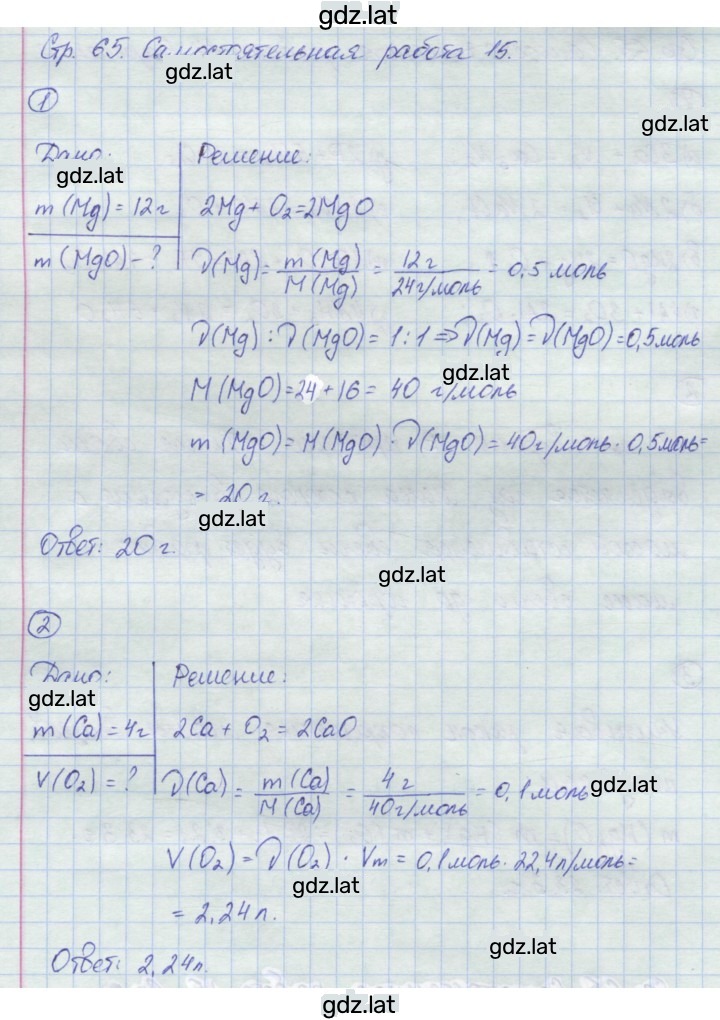 gdz.lat
Стр. 65. Самостоятельная работа 15.
gdz.lat
1
gdz.lat
Дано: Решение:
gdz.lat
m (Mg) = 12 г 2Mg + O₂ = 2MgO
m (MgO) - ? ν(Mg) = m (Mg) / M (Mg) = 12 г / 24 г/моль = 0,5 моль
ν(Mg) : ν(MgO) = 1 : 1 ⇒ ν(Mg) = ν(MgO) = 0,5 моль
gdz.lat
M (MgO) = 24 + 16 = 40 г/моль
m (MgO) = M (MgO) · ν(MgO) = 40 г/моль · 0,5 моль =
= 20 г.
gdz.lat
Ответ: 20 г.
gdz.lat
2
Дано: Решение:
gdz.lat
m (Ca) = 4 г 2Ca + O₂ = 2CaO
V (O₂) = ? ν(Ca) = m (Ca) / M (Ca) = 4 г / 40 г/моль = 0,1 моль
gdz.lat
V (O₂) = ν(O₂) · Vm = 0,1 моль · 22,4 л/моль =
gdz.lat
= 2,24 л.
gdz.lat
Ответ: 2,24 л.
gdz.lat